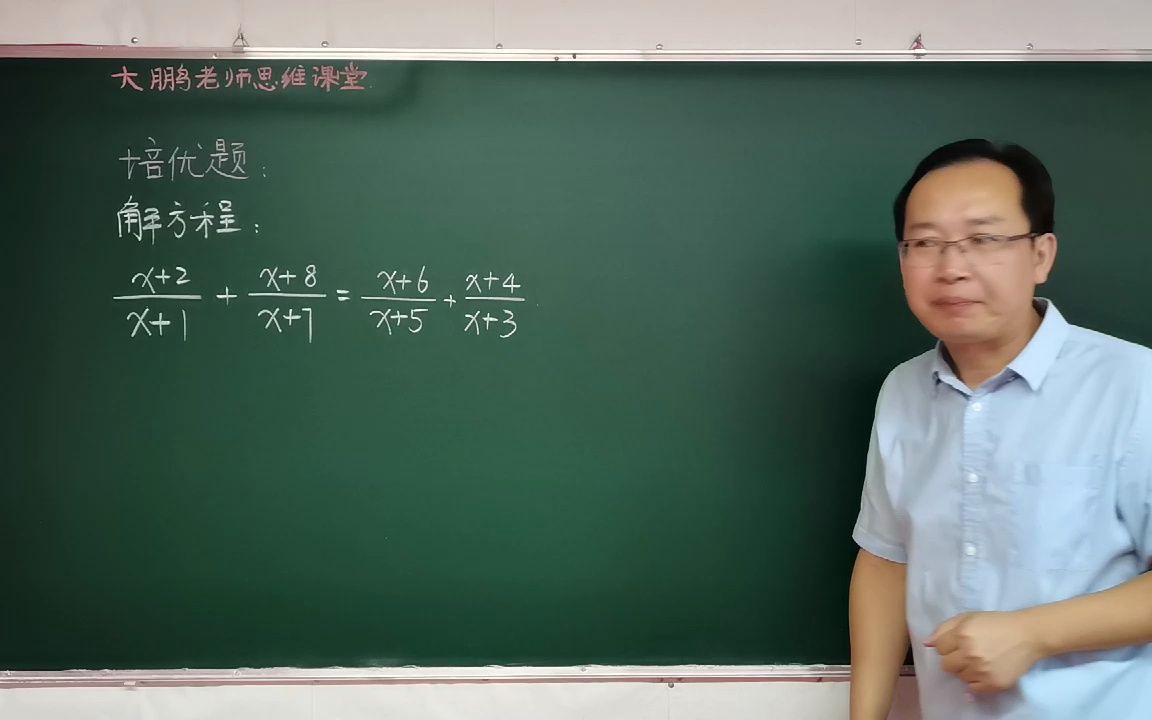 大鹏老师思维课堂
培优题：
解方程：
x+2/x+1 + x+8/x+7 = x+6/x+5 + x+4/x+3